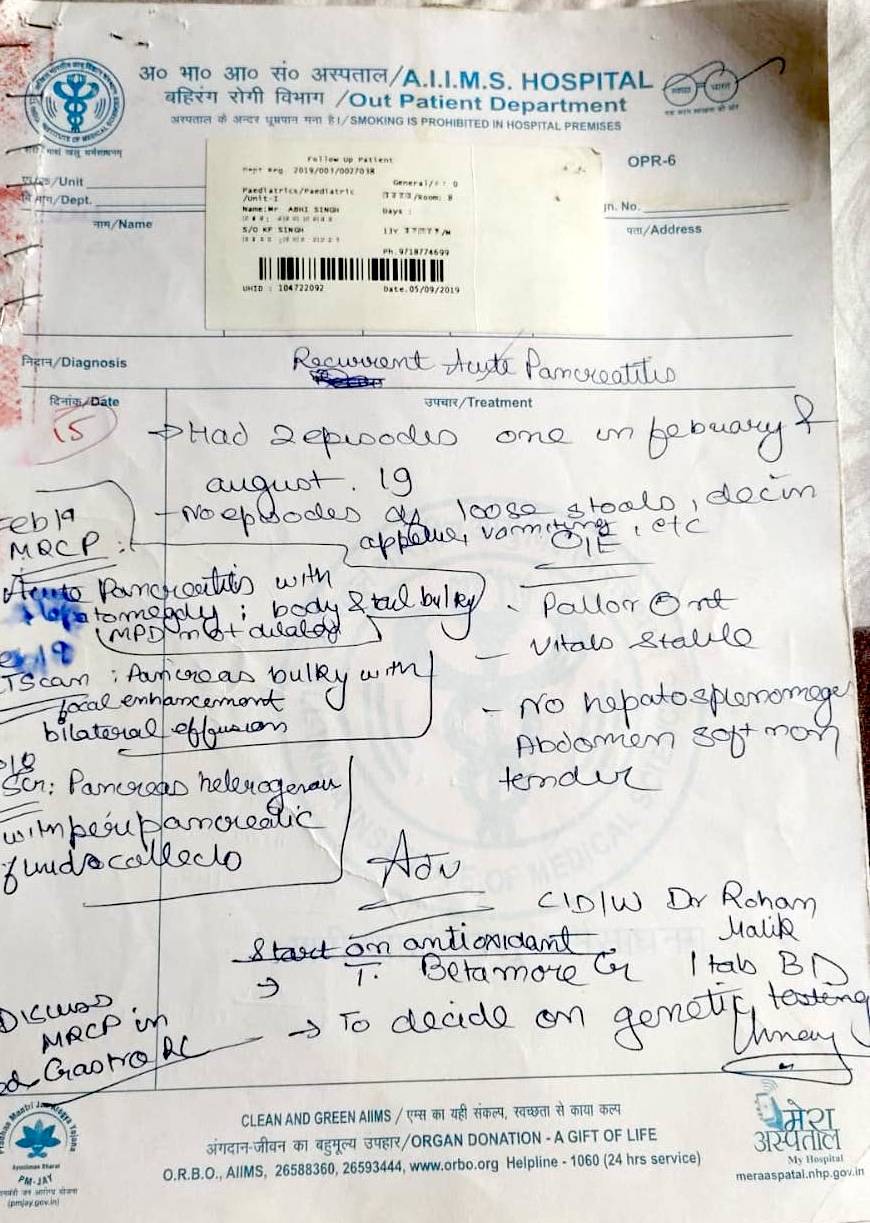 अ० भा० आ० सं० अस्पताल/A.I.I.M.S. HOSPITAL
बहिरंग रोगी विभाग /Out Patient Department
अस्पताल के अन्दर धूम्रपान मना है।/SMOKING IS PROHIBITED IN HOSPITAL PREMISES
OPR-6
Follow Up Patient
Dept Reg. 2019/001/0027038
General/
Paediatrics/Paediatric
/Unit-I
/Room: 8
Name:Mr ABHI SINGH
Days :
S/O KP SINGH
Ph.9718774699
UHID : 104722092
Date.05/09/2019
/Unit
/Dept.
नाम/Name
पता/Address
निदान/Diagnosis
Recurrent Acute Pancreatitis
दिनांक/Date
उपचार/Treatment
15
→ Had 2 episodes one in febuary &
august. 19
- No episodes of loose stools, decin
appetite, vomiting, etc
Feb 19
MRCP :
O/E
Acute Pancreatitis with
body & tail bulky
(MPD not dilated
- Pallor
- Vitals stable
CTScan : Pancreas bulky with
focal enhancement
bilateral effusion
- No hepatosplenomega
Abdomen soft non
tender
Pancreas heterogenou
with peripancreatic
fluid collectio
Adv
C/D/W Dr Rohan
Malik
Start on antioxidant
→ T. Betamore G 1 tab BD
→ To decide on genetic testing
Discuss
MRCP in
Gastro RC
CLEAN AND GREEN AIIMS / एम्स का यही संकल्प, स्वच्छता से काया कल्प
अंगदान-जीवन का बहुमूल्य उपहार/ORGAN DONATION - A GIFT OF LIFE
O.R.B.O., AIIMS, 26588360, 26593444, www.orbo.org Helpline - 1060 (24 hrs service)
Ayushman Bharat
PM-JAY
(pmjay.gov.in)
मेरा
अस्पताल
My Hospital
meraaspatal.nhp.gov.in